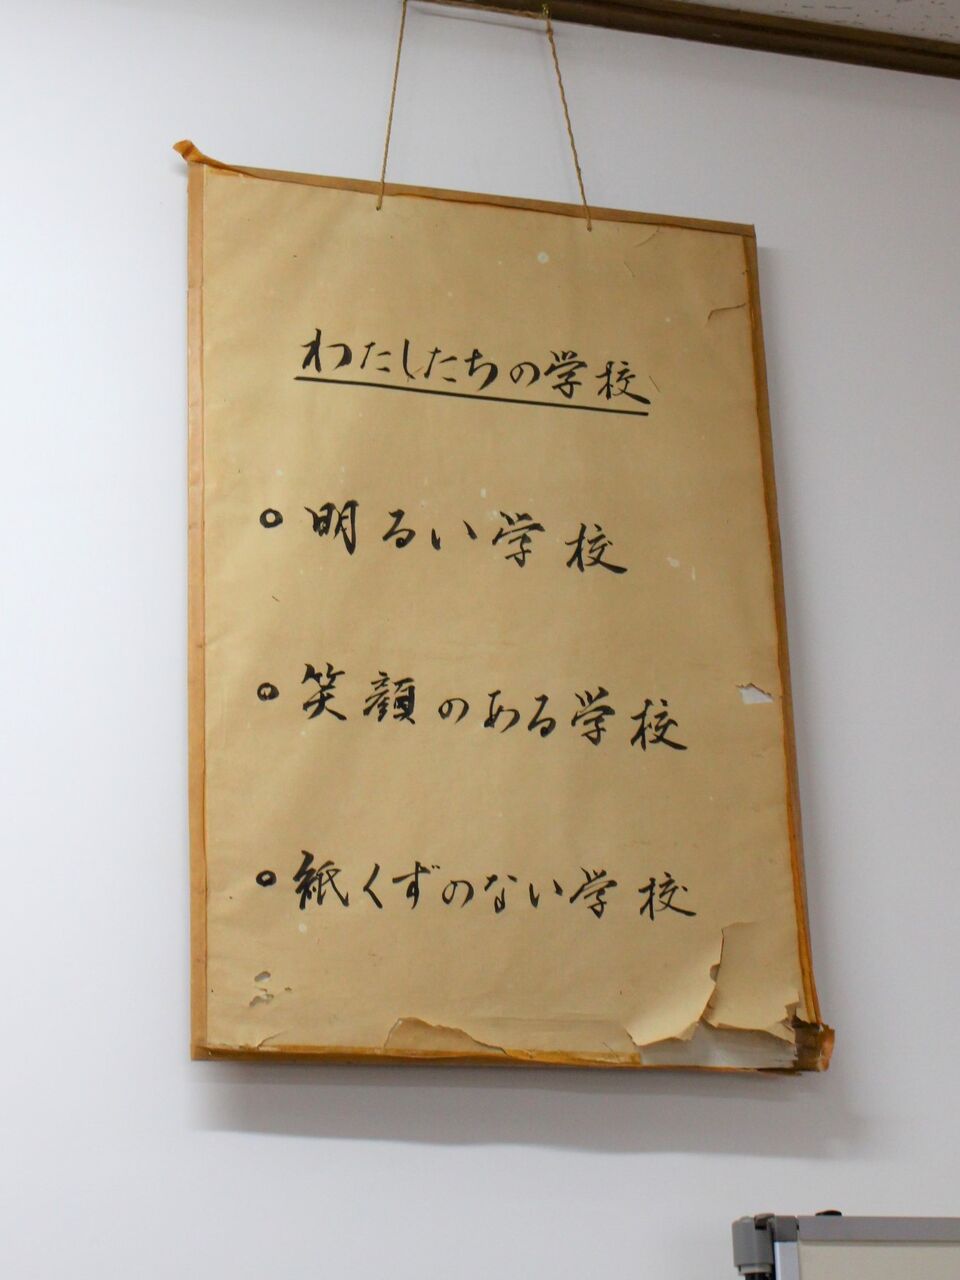 わたしたちの学校
○ 明るい学校
○ 笑顔のある学校
○ 紙くずのない学校